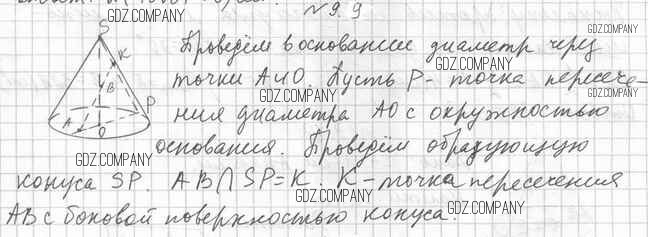 N 9.9
Проведём в основании диаметр через
точки А и О. Пусть Р - точка пересече-
ния диаметра АО с окружностью
основания. Проведём образующую
конуса SP. AB ∩ SP = K. K - точка пересечения
АВ с боковой поверхностью конуса.
S
K
B
A
O
P
GDZ.COMPANY
GDZ.COMPANY
GDZ.COMPANY
GDZ.COMPANY
GDZ.COMPANY
GDZ.COMPANY
GDZ.COMPANY
GDZ.COMPANY
GDZ.COMPANY
GDZ.COMPANY